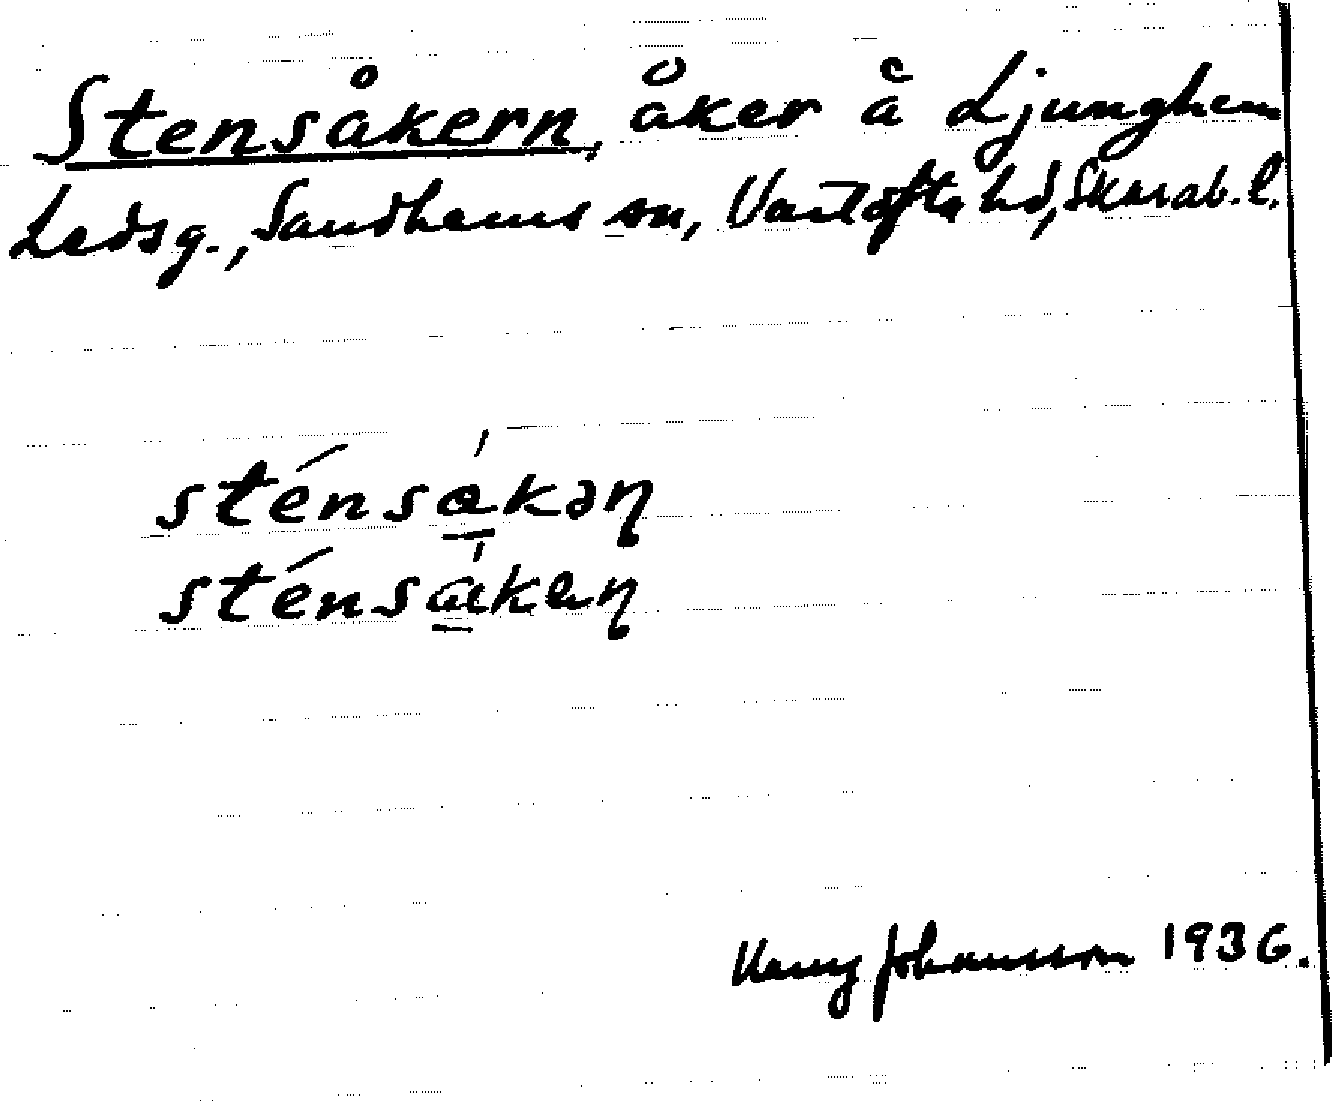 Stensåkern, åker å Ljunghem
Ledsg., Sandhems sn, Vartofta hd, Skarab. l.
sténsåkəɳ
sténsåkɐɳ
Harry Johansson 1936.